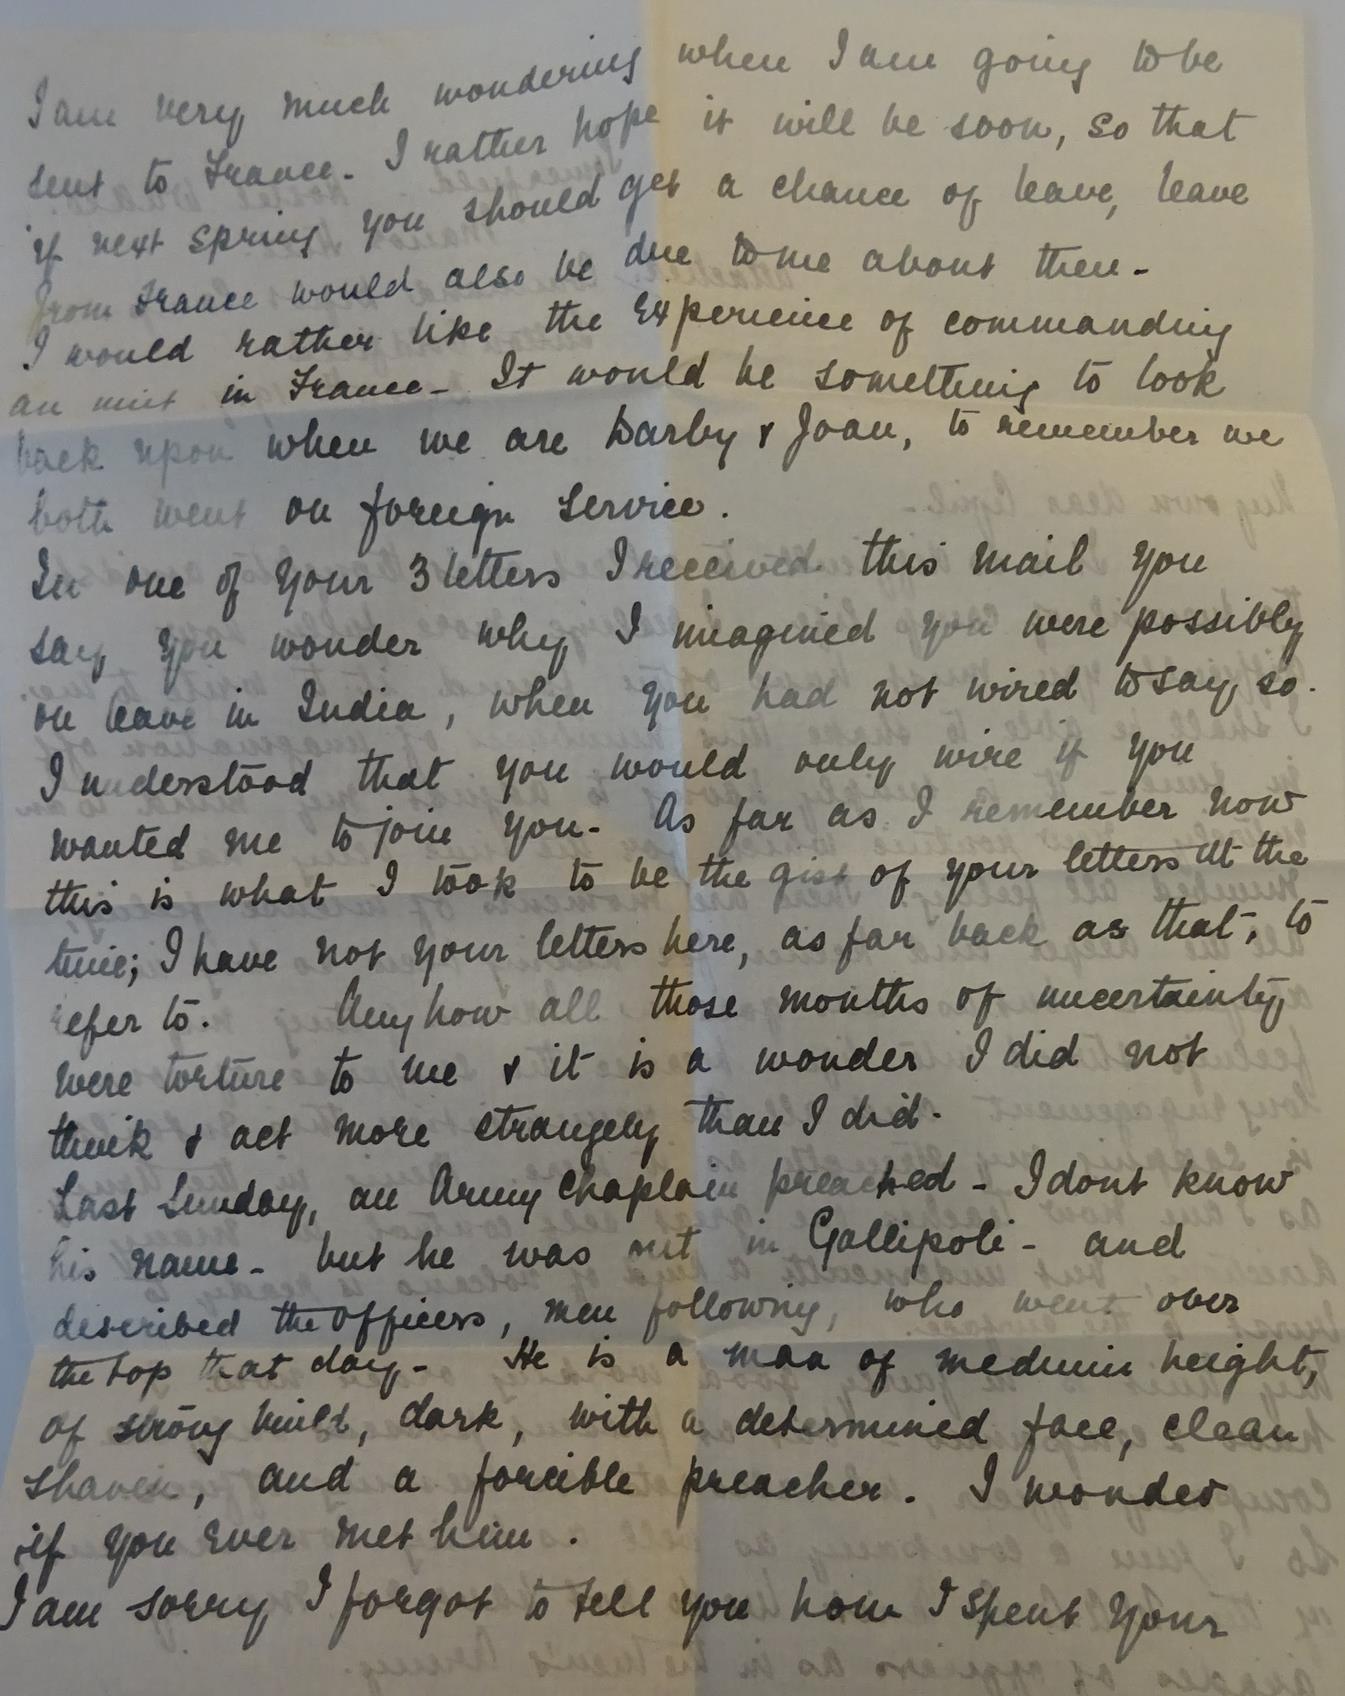 I am very much wondering when I am going to be
sent to France. I rather hope it will be soon, so that
if next spring you should get a chance of leave, leave
from France would also be due to me about then.
I would rather like the experience of commanding
an unit in France. It would be something to look
back upon when we are Darby & Joan, to remember we
both went on foreign service.
In one of your 3 letters I received this mail you
say you wonder why I imagined you were possibly
on leave in India, when you had not wired to say so.
I understood that you would only wire if you
wanted me to join you. As far as I remember now
this is what I took to be the gist of your letters at the
time; I have not your letters here, as far back as that, to
refer to. Anyhow all those months of uncertainty
were torture to me & it is a wonder I did not
think & act more strangely than I did.
Last Sunday, an Army Chaplain preached - I dont know
his name - but he was out in Gallipoli - and
described the officers, men following, who went over
the top that day - He is a man of medium height,
of strong build, dark, with a determined face, clean
shaven, and a forcible preacher. I wonder
if you ever met him.
I am sorry I forgot to tell you how I spent your